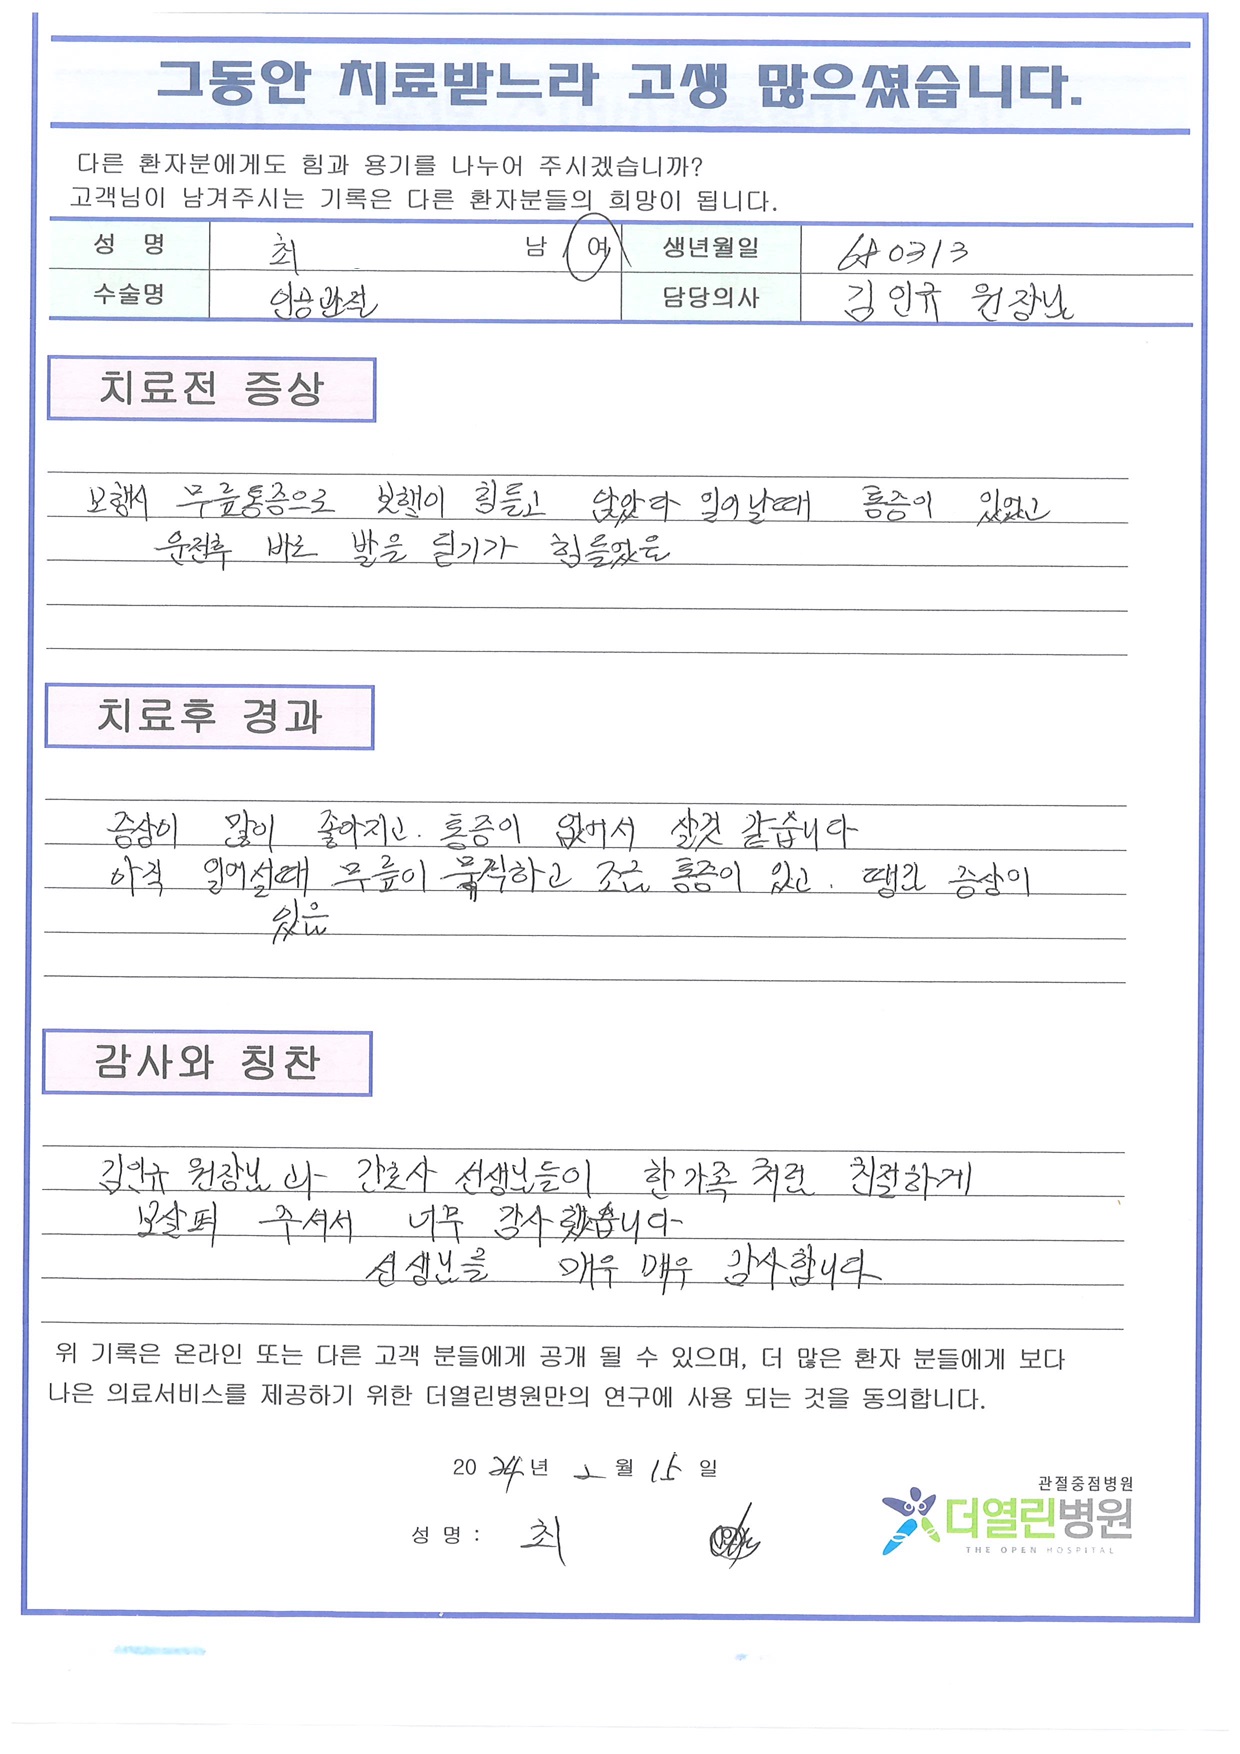 그동안 치료받느라 고생 많으셨습니다.
다른 환자분에게도 힘과 용기를 나누어 주시겠습니까?
고객님이 남겨주시는 기록은 다른 환자분들의 희망이 됩니다.
성 명 최 남 여 생년월일 680313
수술명 인공관절 담당의사 김인규 원장님
치료전 증상
보행시 무릎통증으로 보행이 힘들고 앉았다 일어날때 통증이 있었고
운전후 바로 발을 딛기가 힘들었음
치료후 경과
증상이 많이 좋아지고. 통증이 없어서 살것 같습니다
아직 일어설때 무릎이 묵직하고 조금 통증이 있고. 땡긴 증상이
있음
감사와 칭찬
김인규 원장님과 간호사 선생님들이 한가족 처럼 친절하게
보살펴 주셔서 너무 감사했습니다
선생님들 매우 매우 감사합니다
위 기록은 온라인 또는 다른 고객 분들에게 공개 될 수 있으며, 더 많은 환자 분들에게 보다
나은 의료서비스를 제공하기 위한 더열린병원만의 연구에 사용 되는 것을 동의합니다.
2024년 2월 15일
성 명 : 최
관절중점병원
더열린병원
THE OPEN HOSPITAL